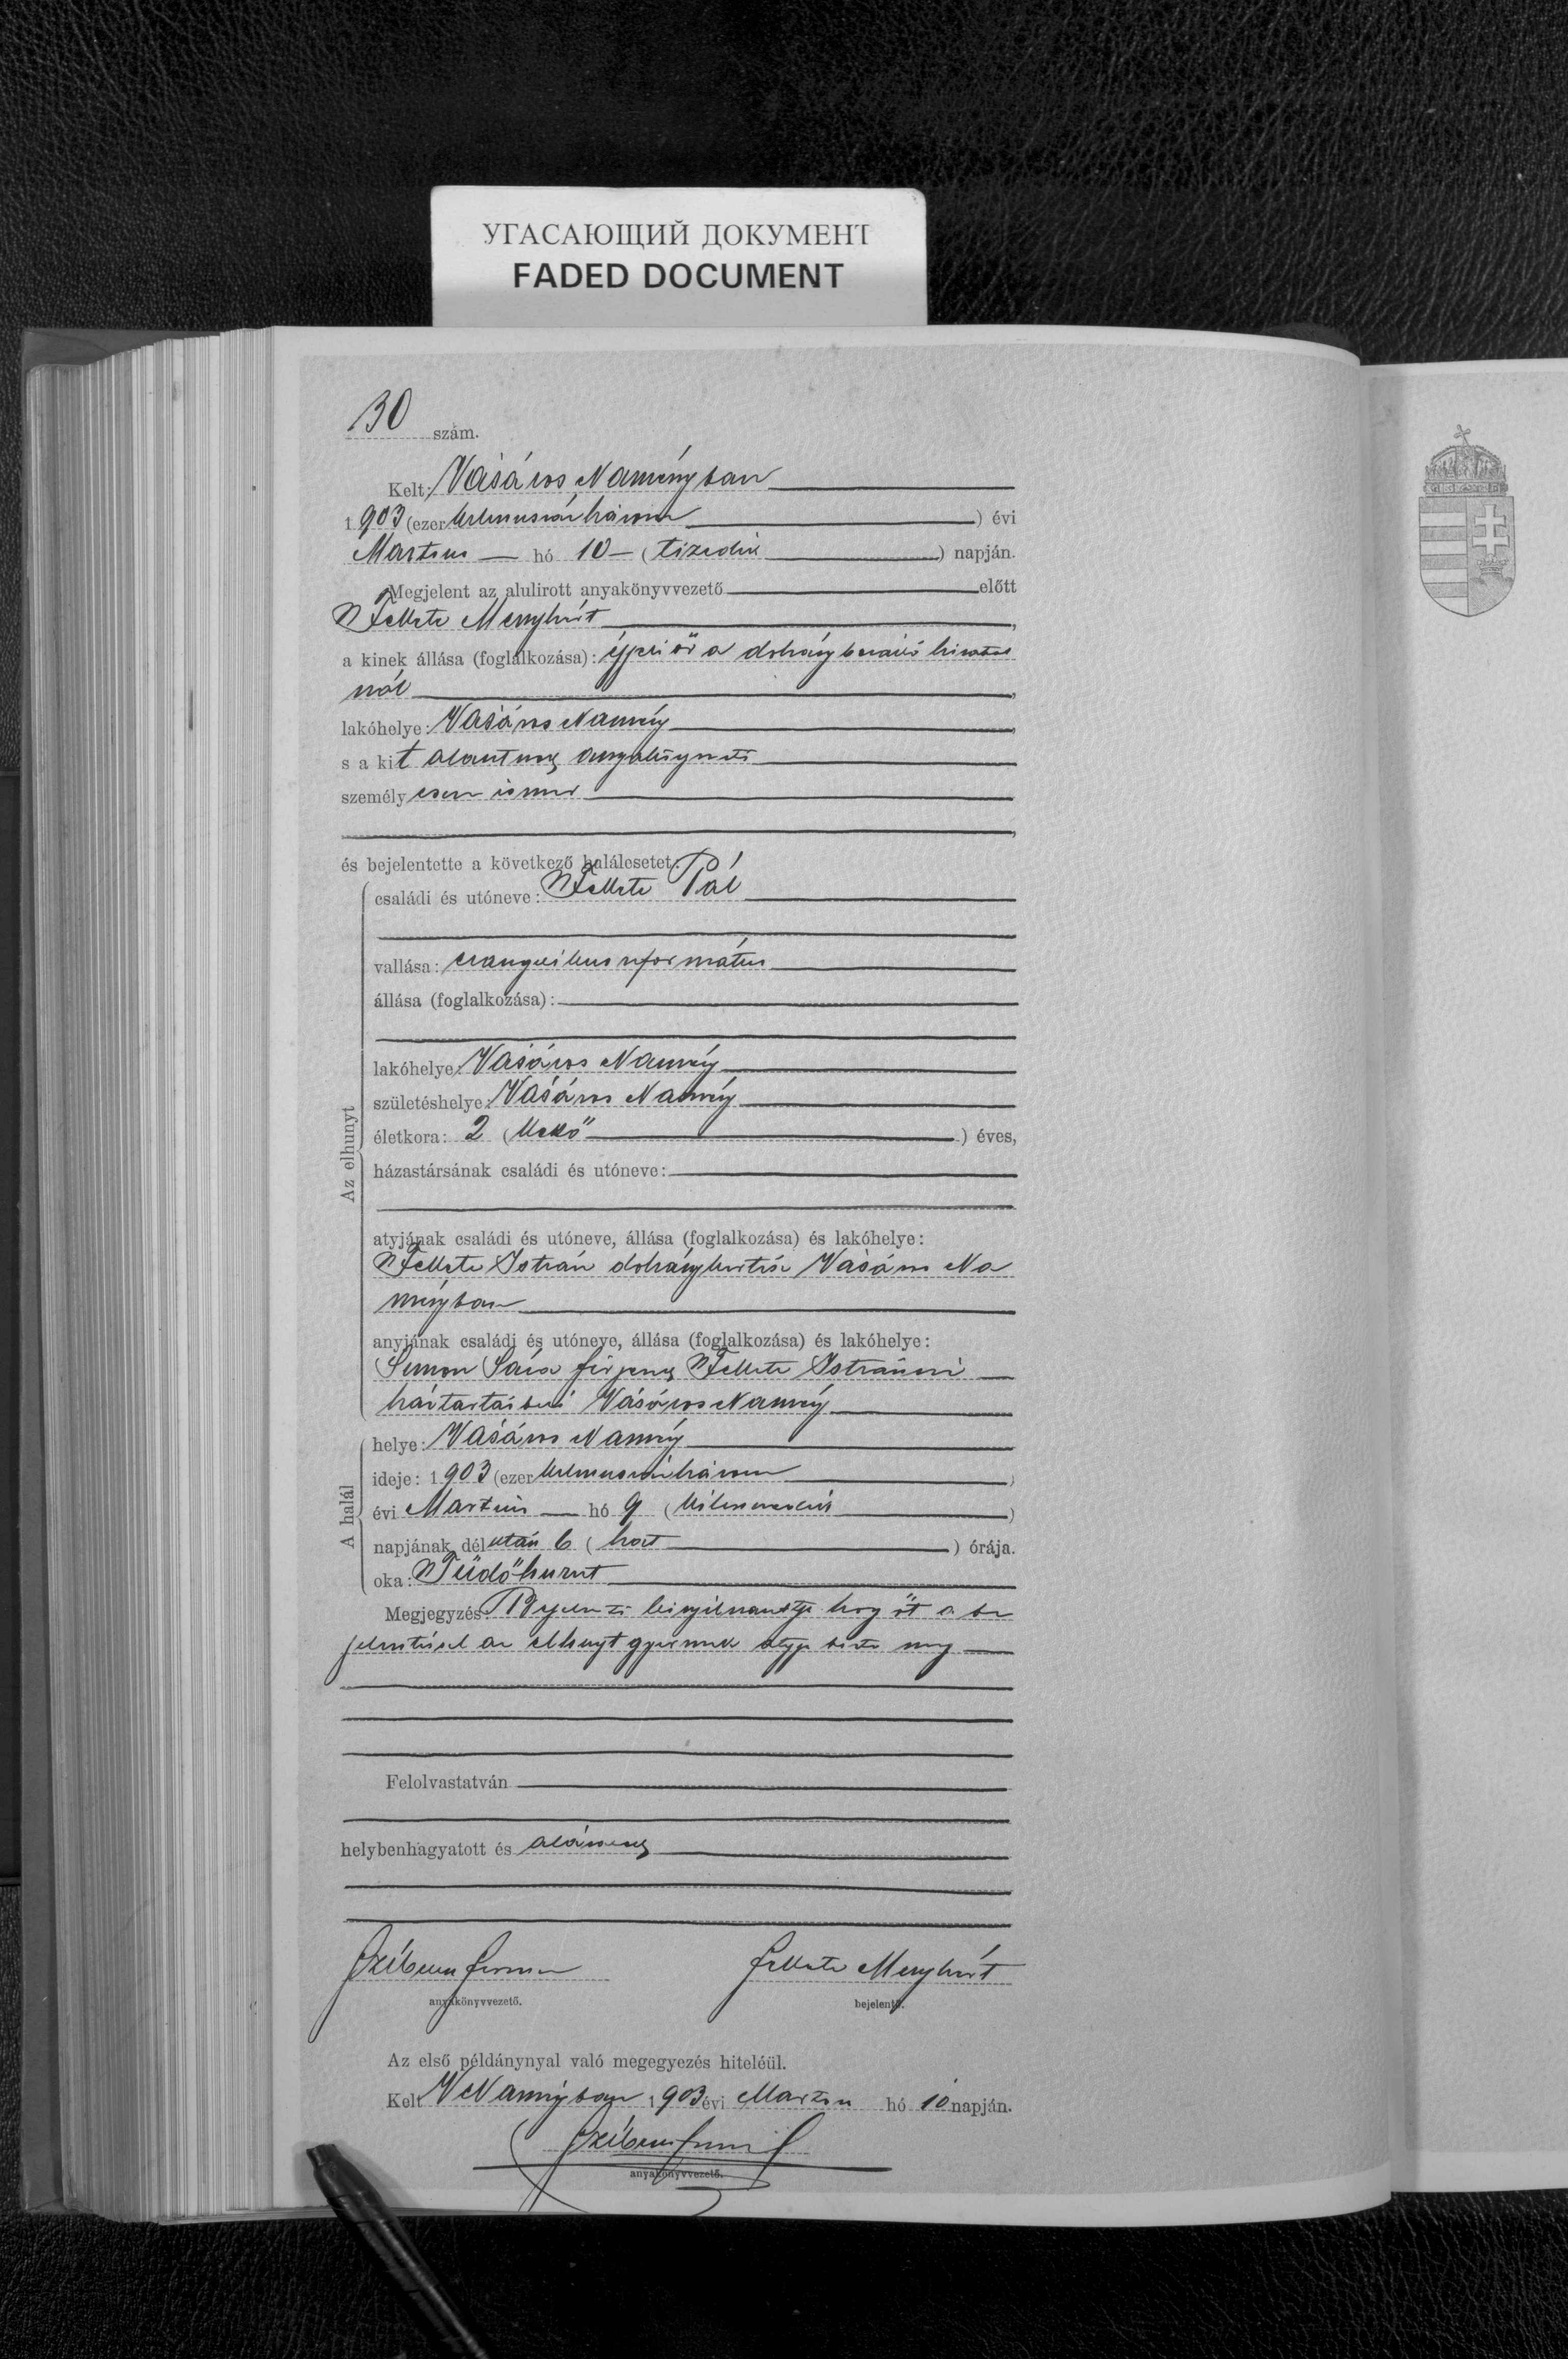 УГАСАЮЩИЙ ДОКУМЕНТ
FADED DOCUMENT
30 szám.
Kelt: Vásáros Naményban
1903 (ezer kilencszázhárom ) évi
Martius hó 10 ( tizedik ) napján.
Megjelent az alulirott anyakönyvvezető előtt
Fekete Menyhért,
a kinek állása (foglalkozása): éjjeli őr a dohánybeváltó hivatal
nál,
lakóhelye: Vásáros Namény,
s a kit alantirt anyakönyvvezető
személyesen ismer,
és bejelentette a következő halálesetet:
Az elhunyt
családi és utóneve: Fekete Pál
vallása: evangelikus református
állása (foglalkozása):
lakóhelye: Vásáros Namény
születéshelye: Vásáros Namény
életkora: 2 ( kettő ) éves,
házastársának családi és utóneve:
atyjának családi és utóneve, állása (foglalkozása) és lakóhelye:
Fekete István dohánykertész Vásáros Na
ményban
anyjának családi és utóneve, állása (foglalkozása) és lakóhelye:
Simon Sára férjezett Fekete Istvánné
háztartásbeli Vásáros Namény
A halál
helye: Vásáros Namény
ideje: 1903 (ezer kilencszázhárom )
évi Martius hó 9 ( kilenczedik )
napjának délután 6 ( hat ) órája.
oka: Tüdőhurut
Megjegyzés: Bejelentő kinyilvánítja hogy őt a be
jelentéssel az elhunyt gyermek atyja bizta meg
Felolvastatván
helybenhagyatott és aláiratott
anyakönyvvezető.
Fekete Menyhért
bejelentő.
Az első példánynyal való megegyezés hiteléül.
Kelt V Naményban 1903 évi Martius hó 10 napján.
anyakönyvvezető.